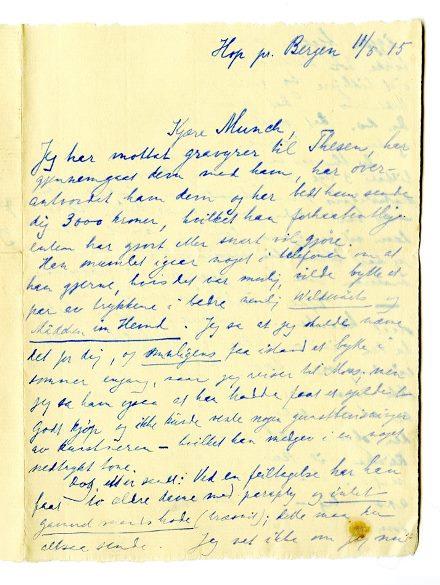 Hop pr. Bergen 11/5 15
Kjære Munch,
Jeg har mottat gravyrer til Thesen, har
gjennemgaat dem med ham, har over-
antvordet ham dem og har bedt ham sende
dig 3000 kroner, hvilket han forhaabentligen
enten har gjort eller snart vil gjøre.
Han mumlet igaar noget i telefonen om at
han gjerne, hvis det var mulig, vilde bytte et
par av trykkene i bedre, nemlig
Mädchen im Hemd. Jeg sa at jeg skulde nævne
det for dig, og muligens faa istand et bytte i
sommer engang, naar jeg reiser til Moss; men
jeg sa ham ogsaa at han hadde faat et
godt kjøp og ikke kunde vente nogen gunstbevisninger
av kunstneren – hvilket han medgav i en noget
nedtrykt tone.
Ved en feiltagelse har han
faat to ældre damer med paraply og intet
gammel mands hode (træsnit); dette maa du
altsaa sende. Jeg vet ikke om jeg